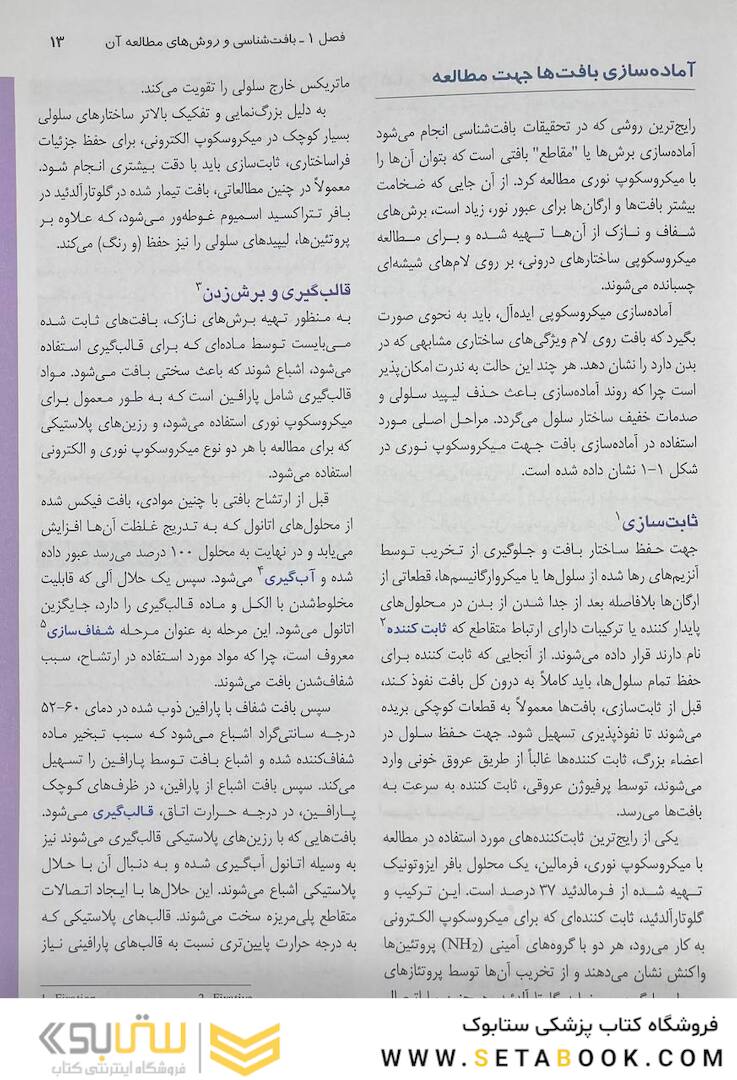 فصل ۱ ـ بافت‌شناسی و روش‌های مطالعه آن ۱۳
آماده‌سازی بافت‌ها جهت مطالعه
رایج‌ترین روشی که در تحقیقات بافت‌شناسی انجام می‌شود
آماده‌سازی برش‌ها یا "مقاطع" بافتی است که بتوان آن‌ها را
با میکروسکوپ نوری مطالعه کرد. از آن جایی که ضخامت
بیشتر بافت‌ها و ارگان‌ها برای عبور نور، زیاد است، برش‌های
شفاف و نازک از آن‌ها تهیه شده و برای مطالعه
میکروسکوپی ساختارهای درونی، بر روی لام‌های شیشه‌ای
چسبانده می‌شوند.
آماده‌سازی میکروسکوپی ایده‌آل، باید به نحوی صورت
بگیرد که بافت روی لام ویژگی‌های ساختاری مشابهی که در
بدن دارد را نشان دهد. هر چند این حالت به ندرت امکان‌پذیر
است چرا که روند آماده‌سازی باعث حذف لیپید سلولی و
صدمات خفیف ساختار سلول می‌گردد. مراحل اصلی مورد
استفاده در آماده‌سازی بافت جهت میکروسکوپ نوری در
شکل ۱-۱ نشان داده شده است.
ثابت‌سازی۱
جهت حفظ ساختار بافت و جلوگیری از تخریب توسط
آنزیم‌های رها شده از سلول‌ها یا میکروارگانیسم‌ها، قطعاتی از
ارگان‌ها بلافاصله بعد از جدا شدن از بدن در محلول‌های
پایدار کننده یا ترکیبات دارای ارتباط متقاطع که ثابت کننده۲
نام دارند قرار داده می‌شوند. از آنجایی که ثابت کننده برای
حفظ تمام سلول‌ها، باید کاملاً به درون کل بافت نفوذ کند،
قبل از ثابت‌سازی، بافت‌ها معمولاً به قطعات کوچکی بریده
می‌شوند تا نفوذپذیری تسهیل شود. جهت حفظ سلول در
اعضاء بزرگ، ثابت کننده‌ها غالباً از طریق عروق خونی وارد
می‌شوند، توسط پرفیوژن عروقی، ثابت کننده به سرعت به
بافت‌ها می‌رسد.
یکی از رایج‌ترین ثابت‌کننده‌های مورد استفاده در مطالعه
با میکروسکوپ نوری، فرمالین، یک محلول بافر ایزوتونیک
تهیه شده از فرمالدئید ۳۷ درصد است. این ترکیب و
گلوتارآلدئید، ثابت کننده‌ای که برای میکروسکوپ الکترونی
به کار می‌رود، هر دو با گروه‌های آمینی (NH2) پروتئین‌ها
واکنش نشان می‌دهند و از تخریب آن‌ها توسط پروتئازهای
ماتریکس خارج سلولی را تقویت می‌کند.
به دلیل بزرگ‌نمایی و تفکیک بالاتر ساختارهای سلولی
بسیار کوچک در میکروسکوپ الکترونی، برای حفظ جزئیات
فراساختاری، ثابت‌سازی باید با دقت بیشتری انجام شود.
معمولاً در چنین مطالعاتی، بافت تیمار شده در گلوتارآلدئید در
بافر تتراکسید اسمیوم غوطه‌ور می‌شود، که علاوه بر
پروتئین‌ها، لیپیدهای سلولی را نیز حفظ (و رنگ) می‌کند.
قالب‌گیری و برش‌زدن۳
به منظور تهیه برش‌های نازک، بافت‌های ثابت شده
می‌بایست توسط ماده‌ای که برای قالب‌گیری استفاده
می‌شود، اشباع شوند که باعث سختی بافت می‌شود. مواد
قالب‌گیری شامل پارافین است که به طور معمول برای
میکروسکوپ نوری استفاده می‌شود، و رزین‌های پلاستیکی
که برای مطالعه با هر دو نوع میکروسکوپ نوری و الکترونی
استفاده می‌شود.
قبل از ارتشاح بافتی با چنین موادی، بافت فیکس شده
از محلول‌های اتانول که به تدریج غلظت آن‌ها افزایش
می‌یابد و در نهایت به محلول ۱۰۰ درصد می‌رسد عبور داده
شده و آب‌گیری۴ می‌شود. سپس یک حلال آلی که قابلیت
مخلوط‌شدن با الکل و ماده قالب‌گیری را دارد، جایگزین
اتانول می‌شود. این مرحله به عنوان مرحله شفاف‌سازی۵
معروف است، چرا که مواد مورد استفاده در ارتشاح، سبب
شفاف‌شدن بافت می‌شوند.
سپس بافت شفاف با پارافین ذوب شده در دمای ۶۰-۵۲
درجه سانتی‌گراد اشباع می‌شود که سبب تبخیر ماده
شفاف‌کننده شده و اشباع بافت توسط پارافین را تسهیل
می‌کند. سپس بافت اشباع از پارافین، در ظرف‌های کوچک
پارافین، در درجه حرارت اتاق، قالب‌گیری می‌شود.
بافت‌هایی که با رزین‌های پلاستیکی قالب‌گیری می‌شوند نیز
به وسیله اتانول آب‌گیری شده و به دنبال آن با حلال
پلاستیکی اشباع می‌شوند. این حلال‌ها با ایجاد اتصالات
متقاطع پلی‌مریزه سخت می‌شوند. قالب‌های پلاستیکی که
به درجه حرارت پایین‌تری نسبت به قالب‌های پارافینی نیاز
فروشگاه کتاب پزشکی ستابوک
WWW.SETABOOK.COM
ستابوک
فروشگاه اینترنتی کتاب